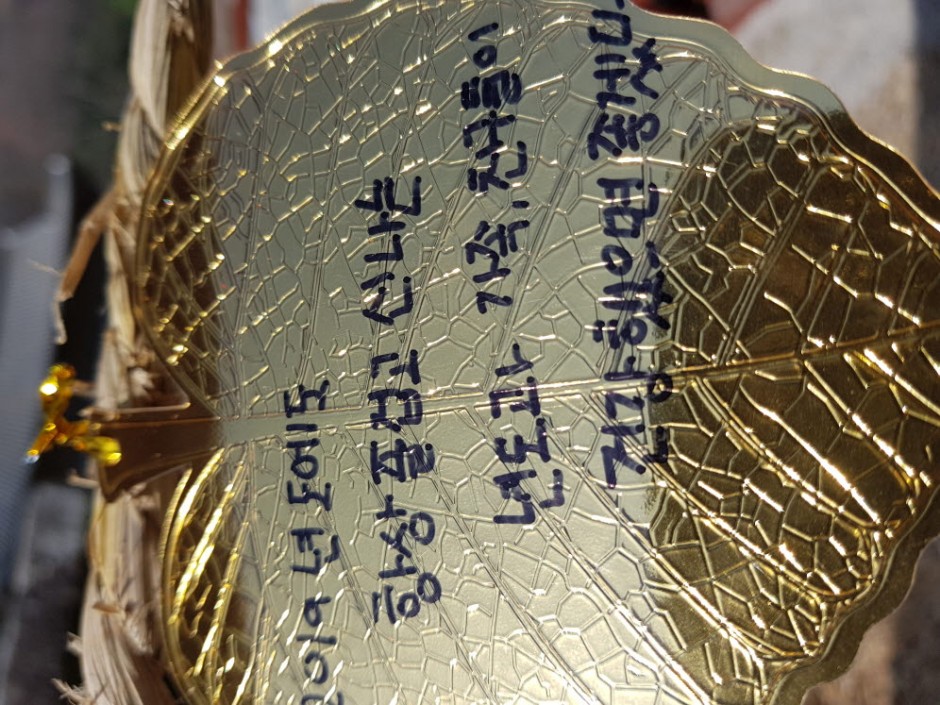 2019 년도에도
항상 즐겁고 신나는
년도 가족, 친구들이
건강했으면 좋겠다